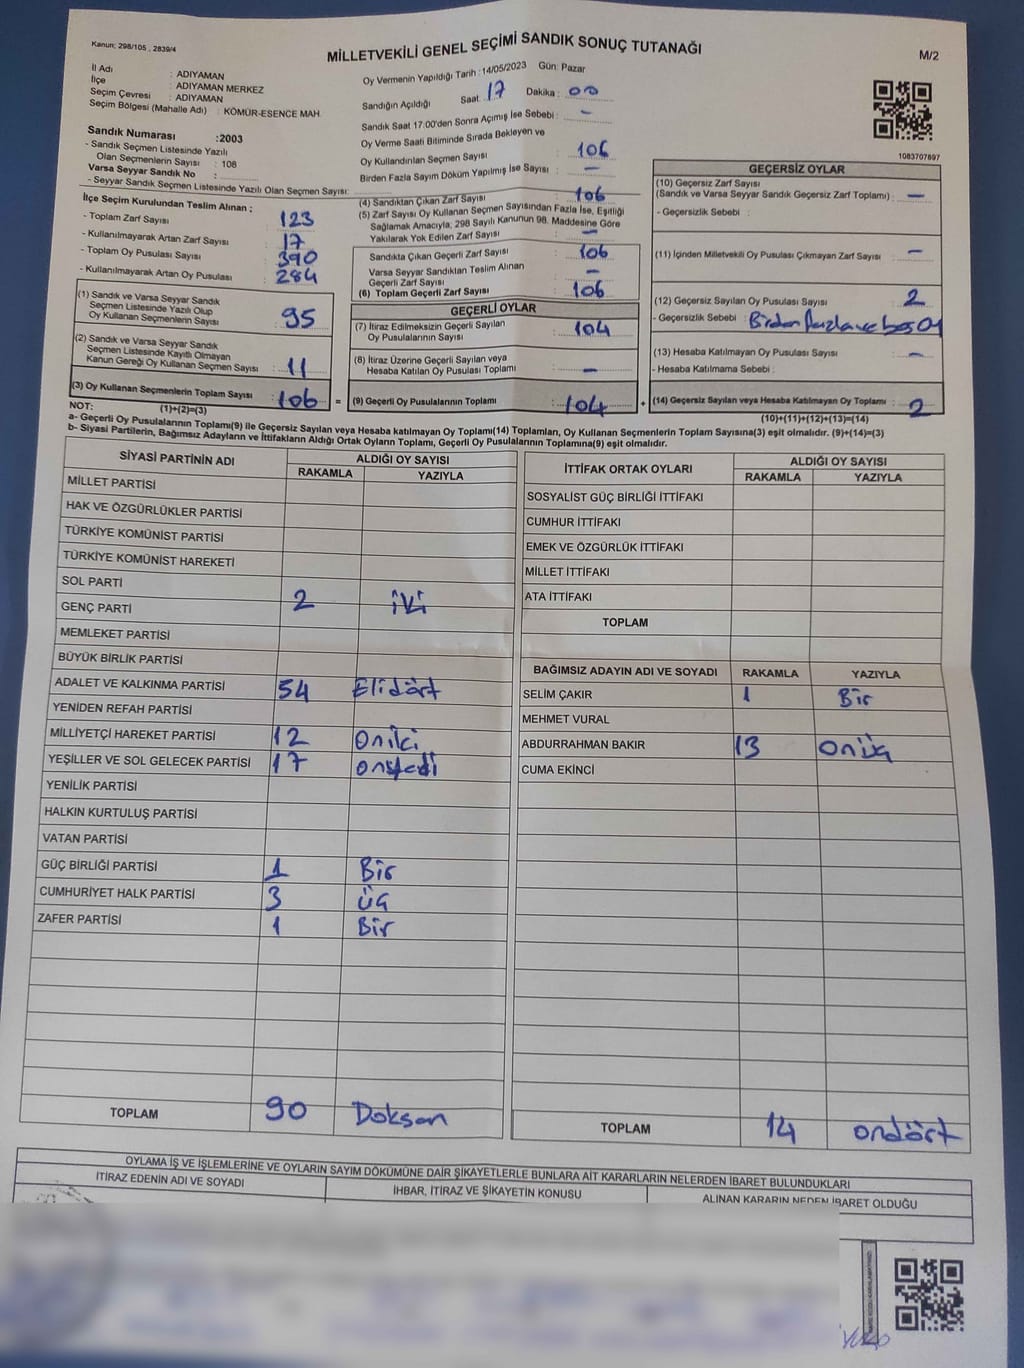 Kanun; 298/105 , 2839/4
MİLLETVEKİLİ GENEL SEÇİMİ SANDIK SONUÇ TUTANAĞI
M/2
İl Adı : ADIYAMAN
İlçe : ADIYAMAN MERKEZ
Seçim Çevresi : ADIYAMAN
Seçim Bölgesi (Mahalle Adı) : KÖMÜR-ESENCE MAH.
Sandık Numarası :2003
- Sandık Seçmen Listesinde Yazılı
Olan Seçmenlerin Sayısı : 108
Varsa Seyyar Sandık No :
- Seyyar Sandık Seçmen Listesinde Yazılı Olan Seçmen Sayısı:
Oy Vermenin Yapıldığı Tarih :14/05/2023 Gün: Pazar
Sandığın Açıldığı Saat 17 Dakika : 00
Sandık Saat 17:00'den Sonra Açımış İse Sebebi : -
Oy Verme Saati Bitiminde Sırada Bekleyen ve
Oy Kullandırılan Seçmen Sayısı : 106
Birden Fazla Sayım Döküm Yapılmış İse Sayısı : -
1083707897
İlçe Seçim Kurulundan Teslim Alınan :
- Toplam Zarf Sayısı : 123
- Kullanılmayarak Artan Zarf Sayısı : 17
- Toplam Oy Pusulası Sayısı : 390
- Kullanılmayarak Artan Oy Pusulası : 284
(1) Sandık ve Varsa Seyyar Sandık
Seçmen Listesinde Yazılı Olup
Oy Kullanan Seçmenlerin Sayısı : 95
(2) Sandık ve Varsa Seyyar Sandık
Seçmen Listesinde Kayıtlı Olmayan
Kanun Gereği Oy Kullanan Seçmen Sayısı : 11
(3) Oy Kullanan Seçmenlerin Toplam Sayısı : 106 =
(1)+(2)=(3)
(4) Sandıktan Çıkan Zarf Sayısı : 106
(5) Zarf Sayısı Oy Kullanan Seçmen Sayısından Fazla İse, Eşitliği
Sağlamak Amacıyla, 298 Sayılı Kanunun 98. Maddesine Göre
Yakılarak Yok Edilen Zarf Sayısı : -
Sandıkta Çıkan Geçerli Zarf Sayısı : 106
Varsa Seyyar Sandıktan Teslim Alınan
Geçerli Zarf Sayısı : -
(6) Toplam Geçerli Zarf Sayısı : 106
GEÇERLİ OYLAR
(7) İtiraz Edilmeksizin Geçerli Sayılan
Oy Pusulalarının Sayısı : 104
(8) İtiraz Üzerine Geçerli Sayılan veya
Hesaba Katılan Oy Pusulası Toplamı : -
(9) Geçerli Oy Pusulalarının Toplamı : 104 +
GEÇERSİZ OYLAR
(10) Geçersiz Zarf Sayısı
(Sandık ve Varsa Seyyar Sandık Geçersiz Zarf Toplamı) : -
- Geçersizlik Sebebi :
(11) İçinden Milletvekili Oy Pusulası Çıkmayan Zarf Sayısı : -
(12) Geçersiz Sayılan Oy Pusulası Sayısı : 2
- Geçersizlik Sebebi : Birden fazla ve boş oy
(13) Hesaba Katılmayan Oy Pusulası Sayısı : -
- Hesaba Katılmama Sebebi :
(14) Geçersiz Sayılan veya Hesaba Katılmayan Oy Toplamı : 2
(10)+(11)+(12)+(13)=(14)
NOT:
a- Geçerli Oy Pusulalarının Toplamı(9) ile Geçersiz Sayılan veya Hesaba katılmayan Oy Toplamı(14) Toplamları, Oy Kullanan Seçmenlerin Toplam Sayısına(3) eşit olmalıdır. (9)+(14)=(3)
b- Siyasi Partilerin, Bağımsız Adayların ve İttifakların Aldığı Ortak Oyların Toplamı, Geçerli Oy Pusulalarının Toplamına(9) eşit olmalıdır.
SİYASİ PARTİNİN ADI ALDIĞI OY SAYISI
RAKAMLA YAZIYLA
MİLLET PARTİSİ
HAK VE ÖZGÜRLÜKLER PARTİSİ
TÜRKİYE KOMÜNİST PARTİSİ
TÜRKİYE KOMÜNİST HAREKETİ
SOL PARTİ
GENÇ PARTİ 2 iki
MEMLEKET PARTİSİ
BÜYÜK BİRLİK PARTİSİ
ADALET VE KALKINMA PARTİSİ 54 Elidört
YENİDEN REFAH PARTİSİ
MİLLİYETÇİ HAREKET PARTİSİ 12 oniki
YEŞİLLER VE SOL GELECEK PARTİSİ 17 onyedi
YENİLİK PARTİSİ
HALKIN KURTULUŞ PARTİSİ
VATAN PARTİSİ
GÜÇ BİRLİĞİ PARTİSİ 1 Bir
CUMHURİYET HALK PARTİSİ 3 üç
ZAFER PARTİSİ 1 Bir
TOPLAM 90 Doksan
İTTİFAK ORTAK OYLARI ALDIĞI OY SAYISI
RAKAMLA YAZIYLA
SOSYALİST GÜÇ BİRLİĞİ İTTİFAKI
CUMHUR İTTİFAKI
EMEK VE ÖZGÜRLÜK İTTİFAKI
MİLLET İTTİFAKI
ATA İTTİFAKI
TOPLAM
BAĞIMSIZ ADAYIN ADI VE SOYADI RAKAMLA YAZIYLA
SELİM ÇAKIR 1 Bir
MEHMET VURAL
ABDURRAHMAN BAKIR 13 onüç
CUMA EKİNCİ
TOPLAM 14 ondört
OYLAMA İŞ VE İŞLEMLERİNE VE OYLARIN SAYIM DÖKÜMÜNE DAİR ŞİKAYETLERLE BUNLARA AİT KARARLARIN NELERDEN İBARET BULUNDUKLARI
İTİRAZ EDENİN ADI VE SOYADI İHBAR, İTİRAZ VE ŞİKAYETİN KONUSU ALINAN KARARIN NEDEN İBARET OLDUĞU